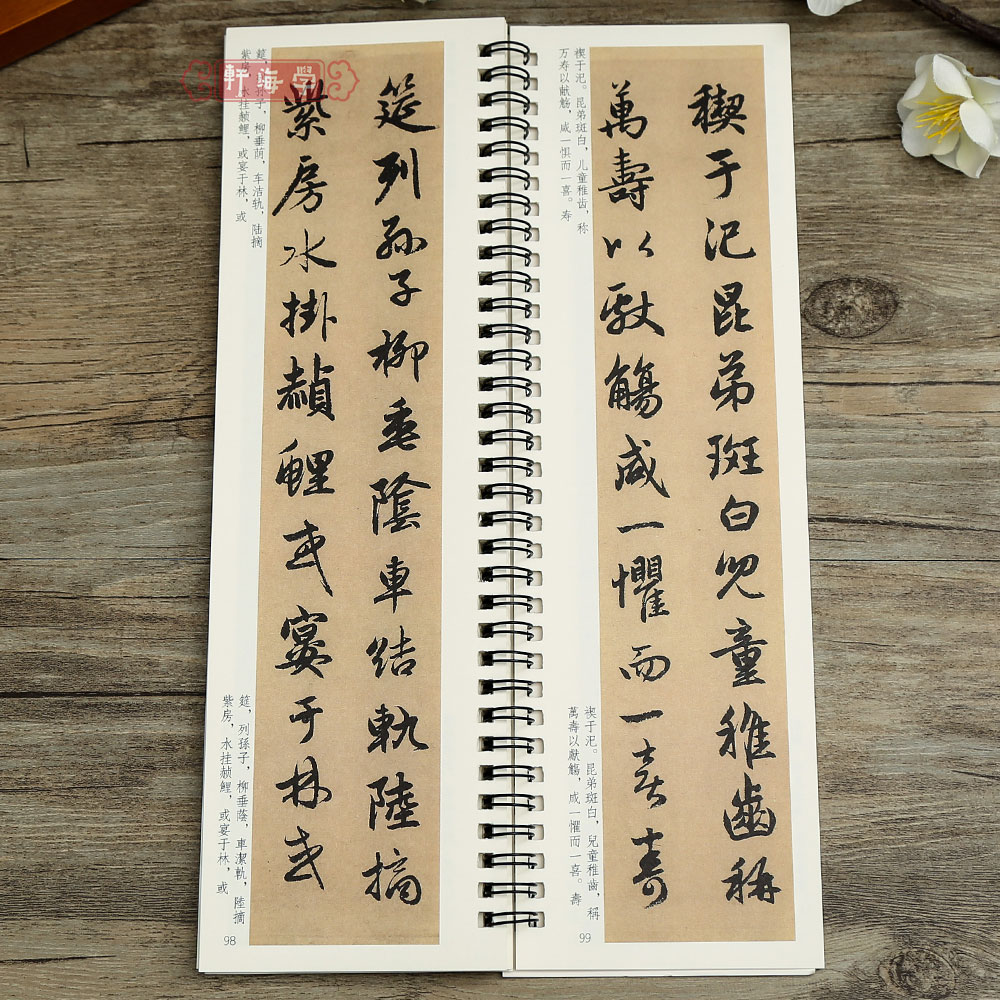 軒海学
筵，列孙子，柳垂荫，车洁轨，陆摘
紫房，水挂赪鲤，或宴于林，或
筵列孫子柳垂陰車結軌陸摘
紫房水掛赬鯉或宴于林或
筵，列孫子，柳垂蔭，車潔軌，陸摘
紫房，水挂赬鯉，或宴于林，或
98
禊于汜。昆弟斑白，儿童稚齿，称
万寿以献觞，咸一惧而一喜。寿
禊于汜昆弟斑白兒童稚齒稱
萬壽以獻觴咸一懼而一喜壽
禊于汜。昆弟斑白，兒童稚齒，稱
萬壽以獻觴，咸一懼而一喜。壽
99